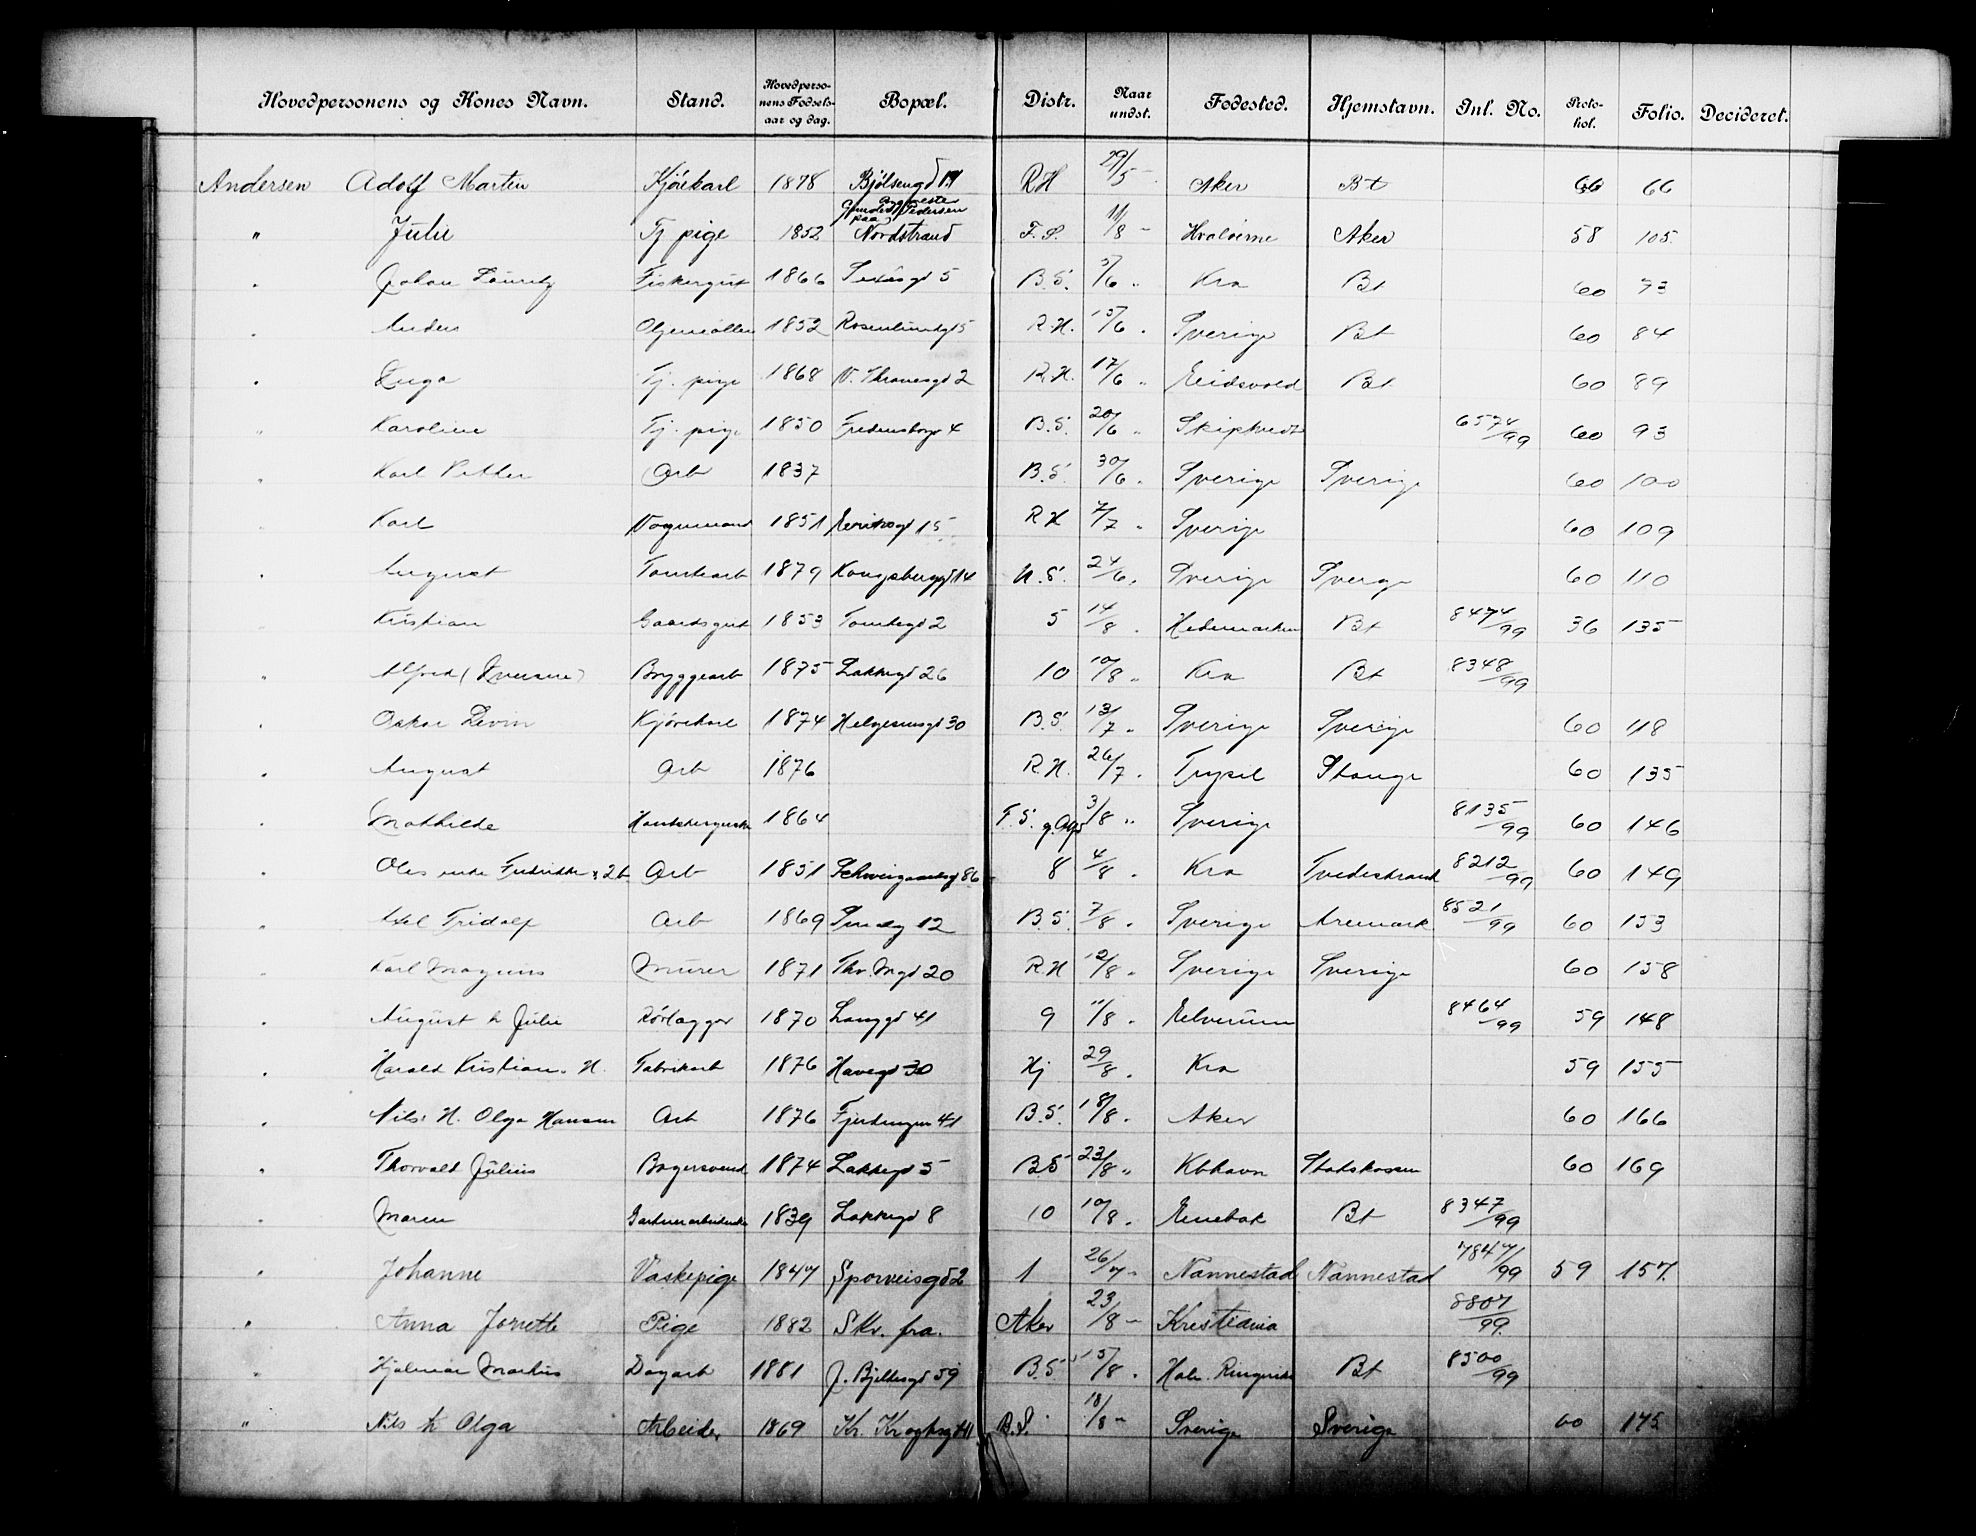 Hovedpersonens og Kones Navn. Stand. Hovedperso-nens Fødsels-aar og dag. Bopæl. Distr. Naar undst. Fødested. Hjemstavn. Inl. No. Proto-kol. Folio. Decideret.
Andersen Adolf Martin Kjørekarl 1878 Bjølsengd 14 R.H 29/5 - Aker Bt 66 66
" Julie Tj pige 1852 Pedersen paa Nordstrand F.S. 11/8 - Hvaløerne Aker 58 105.
" Johan Lauritz Fiskergut 1866 5 B.S. 5/6 " Kra Bt 60 73
" Anders 1852 Rosenlundgt 5 R.H. 15/6 " Sverige Bt 60 84
" Inga Tj. pige 1868 V. Thranesgd 2 R.H. 17/6 " Eidsvold Bt 60 89
" Karoline Tj. pige 1850 Fredensborgv 4 B.S. 20/6 " Skiptvedt 6574/99 60 93
" Karl Petter Arb 1837 B.S. 30/6 " Sverige Sverige 60 100
" Karl Vognmand 1851 Eeriksgd 15 R.H 7/7 " Sverige 60 109
" August Tomtearb 1879 Kongsberggd 14 U.S. 24/6 " Sverige Sverge 60 110
" Kristian Gaardsgut 1853 Tomtegd 2 5 14/8 " Hedemarken Bt 8474/99 36 135
" Alfred (Iversen) Bryggearb 1875 Lakkegd 26 10 10/8 " Kra Bt 8348/99
" Oskar Levin Kjørekarl 1874 Helgesensgd 30 B.S. 13/7 " Sverige Sverige 60 118
" August Arb 1876 R.H. 26/7 " Trysil Stange 60 135
" Mathilde 1864 F.S. 3/8 " Sverige 8135/99 60 146
" Oles enke Fredrikke 2b Arb 1851 Schweigaardsgd 86 8 4/8 " Kra Tvedestrand 8212/99 60 149
" Axel Fridolf Arb 1869 Smedg 12 B.S. 7/8 " Sverige Aremark 8521/99 60 153
" Karl Magnus Murer 1871 Thv. Mgd 20 R.H 12/8 " Sverige Sverige 60 158
" August h Julie Rørlægger 1870 Langgd 41 9 11/8 " Elverum 8464/99 59 148
" Harald Kristian. H. Fabrikarb 1876 Havegd 30 Hj 29/8 " Kra 59 155
" Nils H. Olga Hansen Arb 1876 Fjerdingen 41 B.S. 18/8 " Aker 60 166
" Thorvald Julius Bagersvend 1874 Lakkegd 5 B.S 23/8 " Kbhavn Statskassen 60 169
" Maren Gartnerarbeiderske 1839 Lakkegd 8 10 10/8 " Enebak Bt 8347/99
" Johanne Vaskepige 1847 Sporveisgd 2 1 26/7 - Nannestad Nannestad 7847/99 59 157.
" Anna Jonette Pige 1882 Skr. fra. Aker 23/8 - Kristiania 8807/99.
" Hjalmar Markus Dagarb 1881 J. Bjelkesgd 59 B.S 15/8 " Hole. Ringerike Bt 8500/99
" Nils h Olga Arbeider 1869 Kr. Kroghsgd 41 B.S. 18/8 - Sverige Sverige 60 175